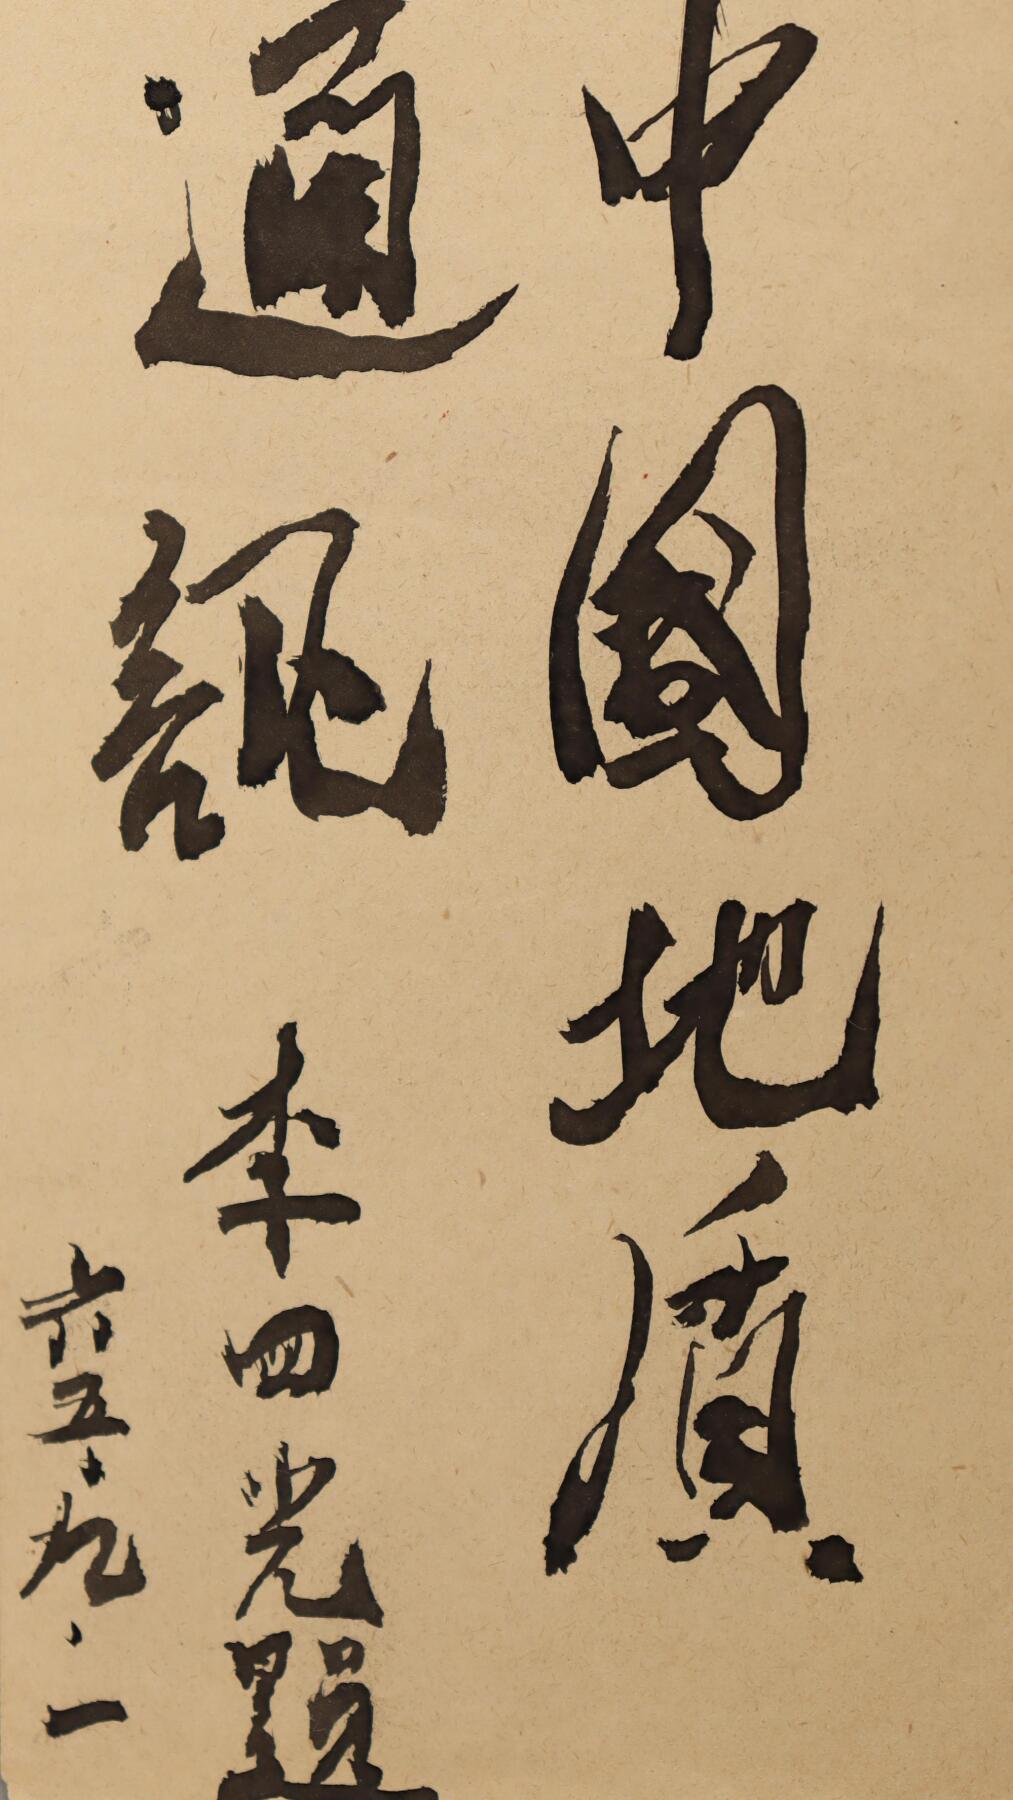 中国地质
通訊
李四光題
六五、九、一